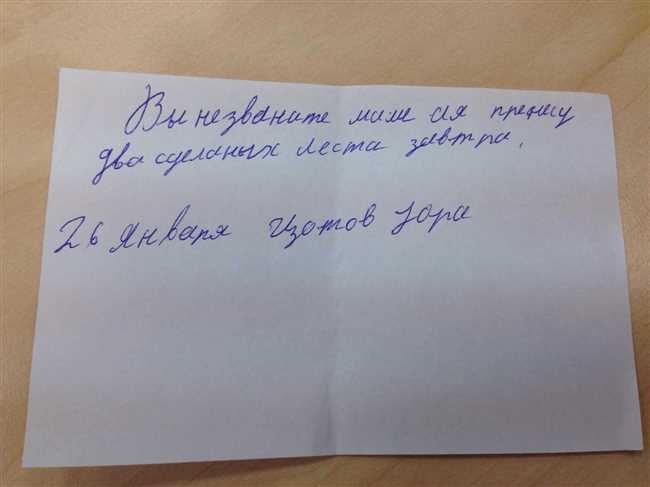 Вы незваните маме а я пренесу
два сделаных листа завтра.
26 Января Изотов Юра